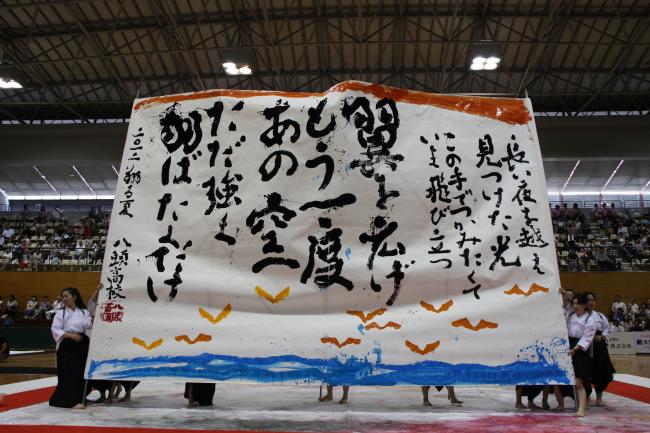 長い夜を越え
見つけた光
この手でつかみたくて
いま飛び立つ
翼を広げ
もう一度
あの空へ
ただ強く
羽ばたくだけ
二〇一二
八頭高校
株式会社